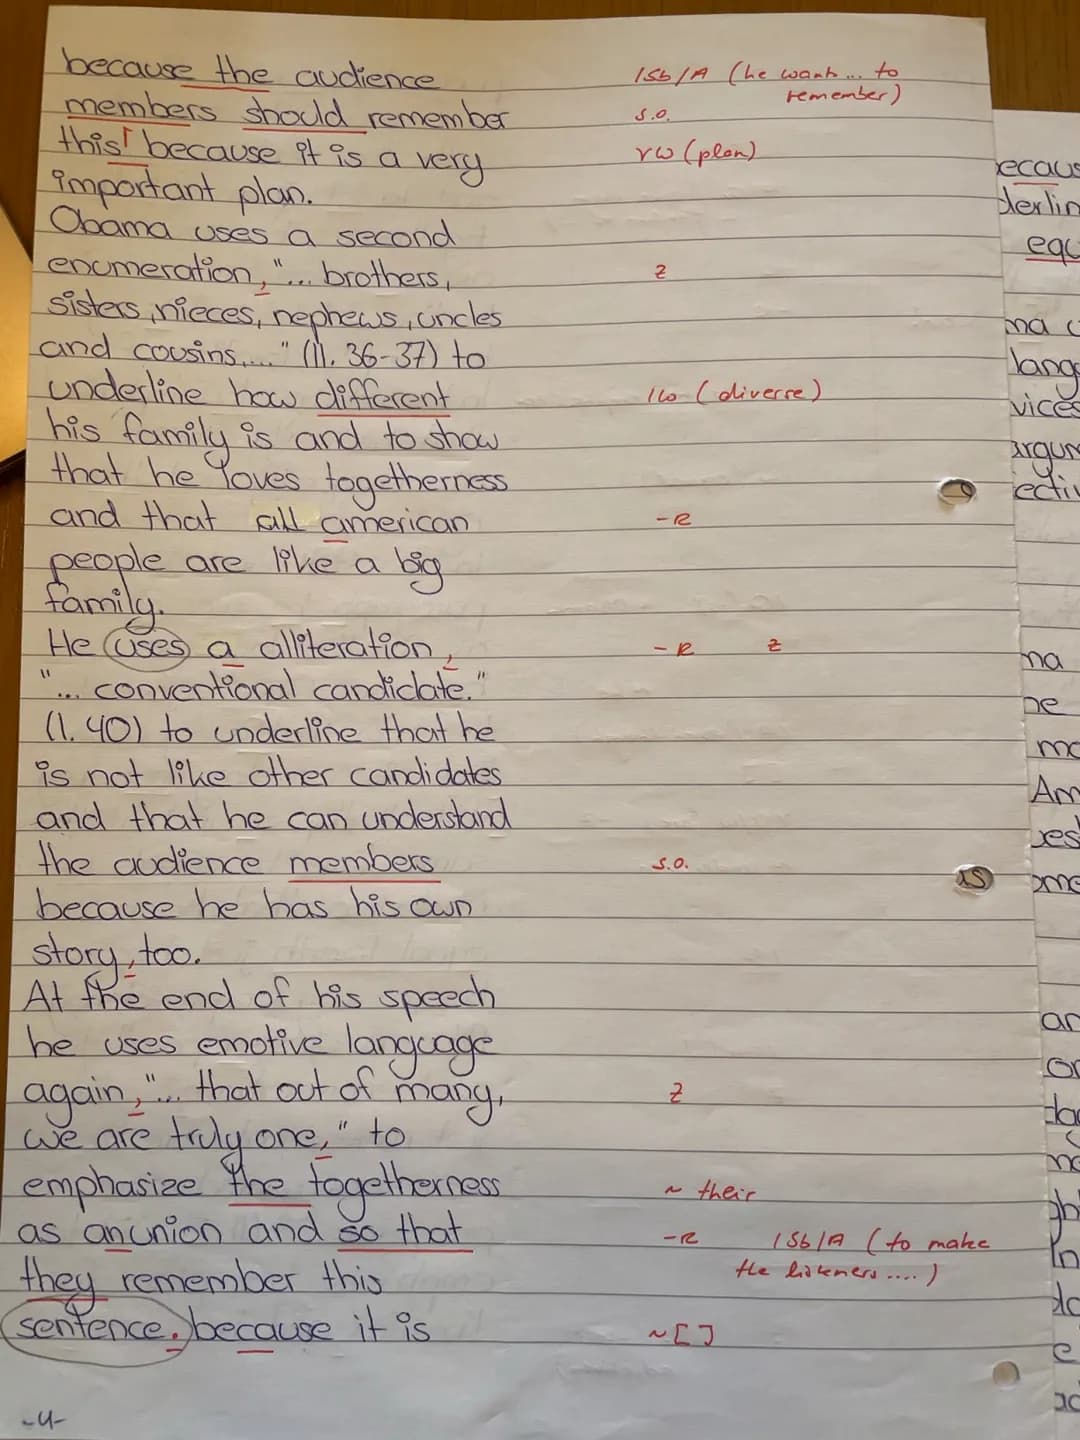 because the audience
1Sb/A (he wants ... to
remember)
members should remember
s.o.
this because it is a very
rw (plan)
important plan.
Obama uses a second
enumeration, "... brothers,
z
sisters, nieces, nephews, uncles
and cousins,..." (ll. 36-37) to
underline how different
lw (diverse)
his family is and to show
that he loves togetherness
and that all american
-R
people are like a big
family.
He uses a alliteration,
-R z
"... conventional candidate."
(l. 40) to underline that he
is not like other candidates
and that he can understand
the audience members
s.o.
because he has his own
story, too.
At the end of his speech
he uses emotive language
again, "... that out of many,
z
we are truly one," to
emphasize the togetherness
~ their
as an union and so that
-R 1Sb/A (to make
the listeners ....)
they remember this
sentence. because it is
~[]
-4-